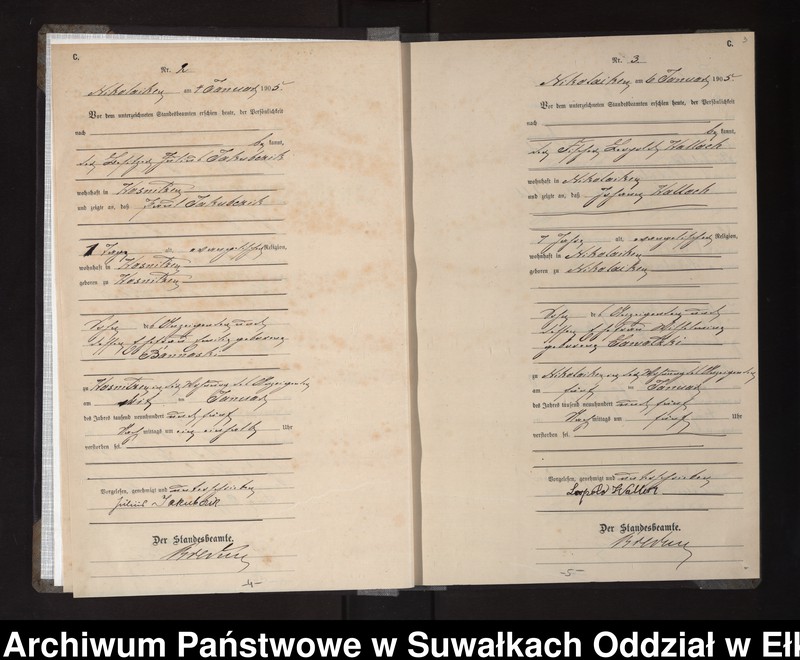 C.
Nr. 2
Nikolaiken am 2 Januar 1905.
Vor dem unterzeichneten Standesbeamten erschien heute, der Persönlichkeit
nach
be kannt,
der Besitzer Julius Jakubczik
wohnhaft in Kosniken
und zeigte an, daß Paul Jakubczik
1 Tag alt, evangelischer Religion,
wohnhaft in Kosniken
geboren zu Kosniken
Sohn des Anzeigenden und
dessen Ehefrau geborene
zu Kosniken in der Wohnung des Anzeigenden
am Januar
des Jahres tausend neunhundert und fünf
Nach mittags um ein einhalb Uhr
verstorben sei.
Vorgelesen, genehmigt und unterschrieben
Julius Jakubczik
Der Standesbeamte.
-4-
C. 3
Nr. 3
Nikolaiken am 6 Januar 1905
Vor dem unterzeichneten Standesbeamten erschien heute, der Persönlichkeit
nach
be kannt,
der Fischer Leopold Wallach
wohnhaft in Nikolaiken
und zeigte an, daß Johann Wallach
7 Jahre alt, evangelischer Religion,
wohnhaft in Nikolaiken
geboren zu Nikolaiken
Sohn des Anzeigenden und
dessen Ehefrau Wilhelmine
geborene Sawatzki
zu Nikolaiken in der Wohnung des Anzeigenden
am fünf ten Januar
des Jahres tausend neunhundert und fünf
Nach mittags um fünf Uhr
verstorben sei.
Vorgelesen, genehmigt und unterschrieben
Leopold Wallach
Der Standesbeamte.
-5-
Archiwum Państwowe w Suwałkach Oddział w Ełk